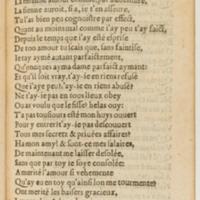 La sienne auroit, si a, ie t'en asseure,
Tu l'as bien peu cognoistre par effect,
Quant au moins mal comme i'ay peu t'ay faict,
Depuis le temps que t'ay esté esprise
De ton amour tu sçais que, sans faintise,
Ie t'ay aymé autant parfaictement,
Qu'oncques ayma dame parfaict aymant:
Et qu'il soit vray, t'ay-ie en riens refusé
Que i'aye peu? t'ay-ie en riens abusé?
Ne t'ay-ie pas en tous lieux obey
Ou as voulu que ie fisse? helas ouy:
T'a pas tousiours esté mon huys ouuert
Pour y entrer? t'ay-ie pas descouuert
Tous mes secrets & priuées affaires?
Ha mon amy! & sont-ce mes salaires,
De maintenant me laisser desolée,
Sans que par toy ie soye consolée:
A merité l'amour si vehemente
Qu'ay eu en toy qu'ainsi lon me tourmente?
Ont merité les baisers gracieux,